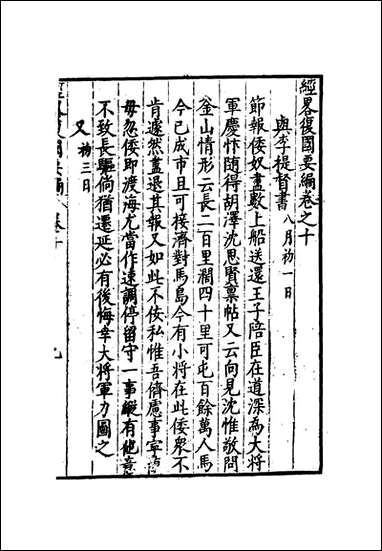 經略復國要編卷之十
與李提督書 八月初一日
節報倭奴盡數上船送還王子陪臣在道深為大將
軍慶忭隨得胡澤沈思賢稟帖又云向見沈惟敬問
釜山情形云長二百里濶四十里可屯百餘萬人馬
今已成市且可接濟對馬島今有小將在此倭衆不
肯遽然盡退其報又如此不佞私惟吾儕慮事寧
毋忽倭即渡海尤當作速調停留守一事縱有他
不致長驅倘猶遷延必有後悔幸大將軍力圖之
又 初三日